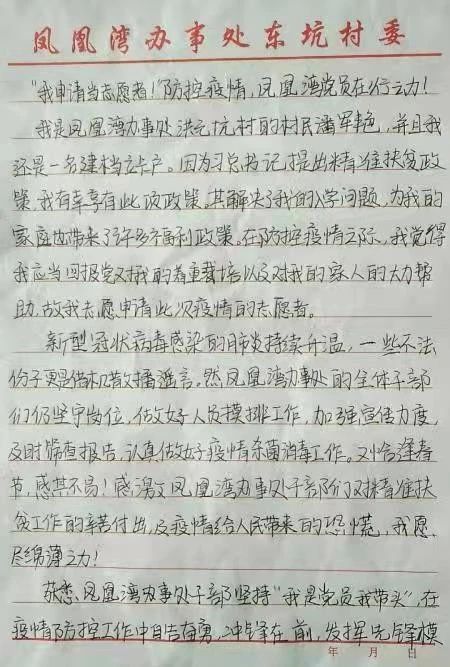 凤凰湾办事处东坑村委
“我申请当志愿者!”防控疫情,凤凰湾党员在行动!
我是凤凰湾办事处洪元坑村的村民潘军艳,并且我
还是一名建档立卡户。因为习总书记提出精准扶贫政
策,我有幸享有此项政策。其解决了我的入学问题,为我的
家庭也带来了许多福利政策。在防控疫情之际,我觉得
我应当回报党对我的着重栽培以及对我的家人的大力帮
助,故我志愿申请此次疫情的志愿者。
新型冠状病毒感染的肺炎持续升温,一些不法
份子更是借机散播谣言。然凤凰湾办事处的全体干部
们仍坚守岗位,做好人员摸排工作,加强宣传力度,
及时筛查报告,认真做好疫情杀菌消毒工作。又恰逢春
节,感其不易!感激凤凰湾办事处干部们对精准扶
贫工作的辛苦付出,及疫情给人民带来的恐慌,我愿
尽绵薄之力!
获悉,凤凰湾办事处干部坚持“我是党员我带头”,在
疫情防控工作中自告奋勇,冲锋在前,发挥先锋模
年 月 日